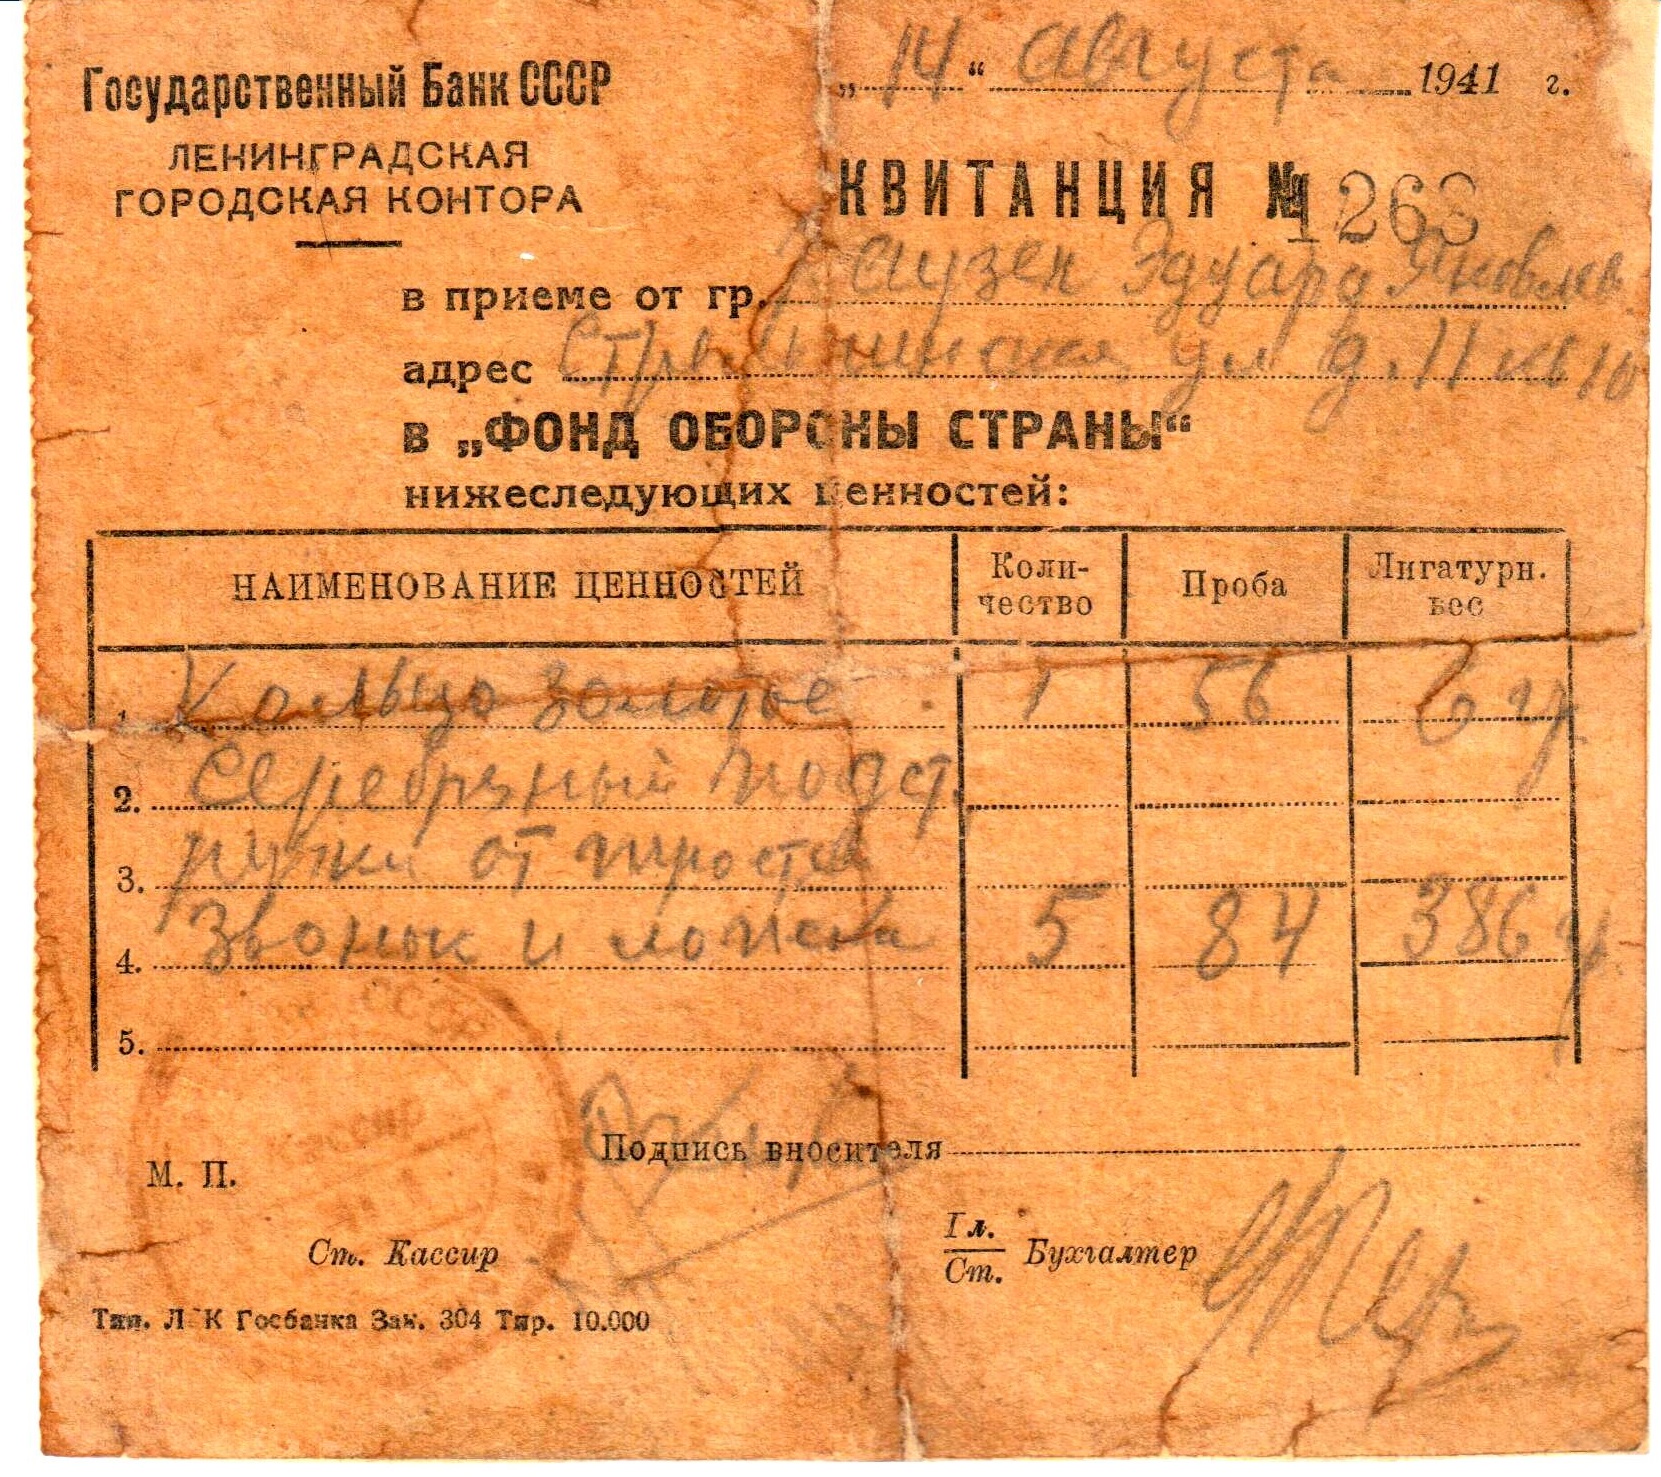 Государственный Банк СССР
ЛЕНИНГРАДСКАЯ
ГОРОДСКАЯ КОНТОРА
„ 14 “ августа 1941 г.
КВИТАНЦИЯ № 1263
в приеме от гр. Эдуард
адрес Стремянная ул д. 11 кв 16
в „ФОНД ОБОРОНЫ СТРАНЫ“
нижеследующих ценностей:
НАИМЕНОВАНИЕ ЦЕННОСТЕЙ Коли- Проба Лигатурн.
чество вес
1. Кольцо золотое 1 56 6 гр
2. Серебряный подст.
3. ручки от трости
4. Звонок и ложка 5 84 386 гр
5.
Подпись вносителя
М. П.
Ст. Кассир Гл. Ст. Бухгалтер
Тип. Л К Госбанка Зак. 304 Тир. 10.000